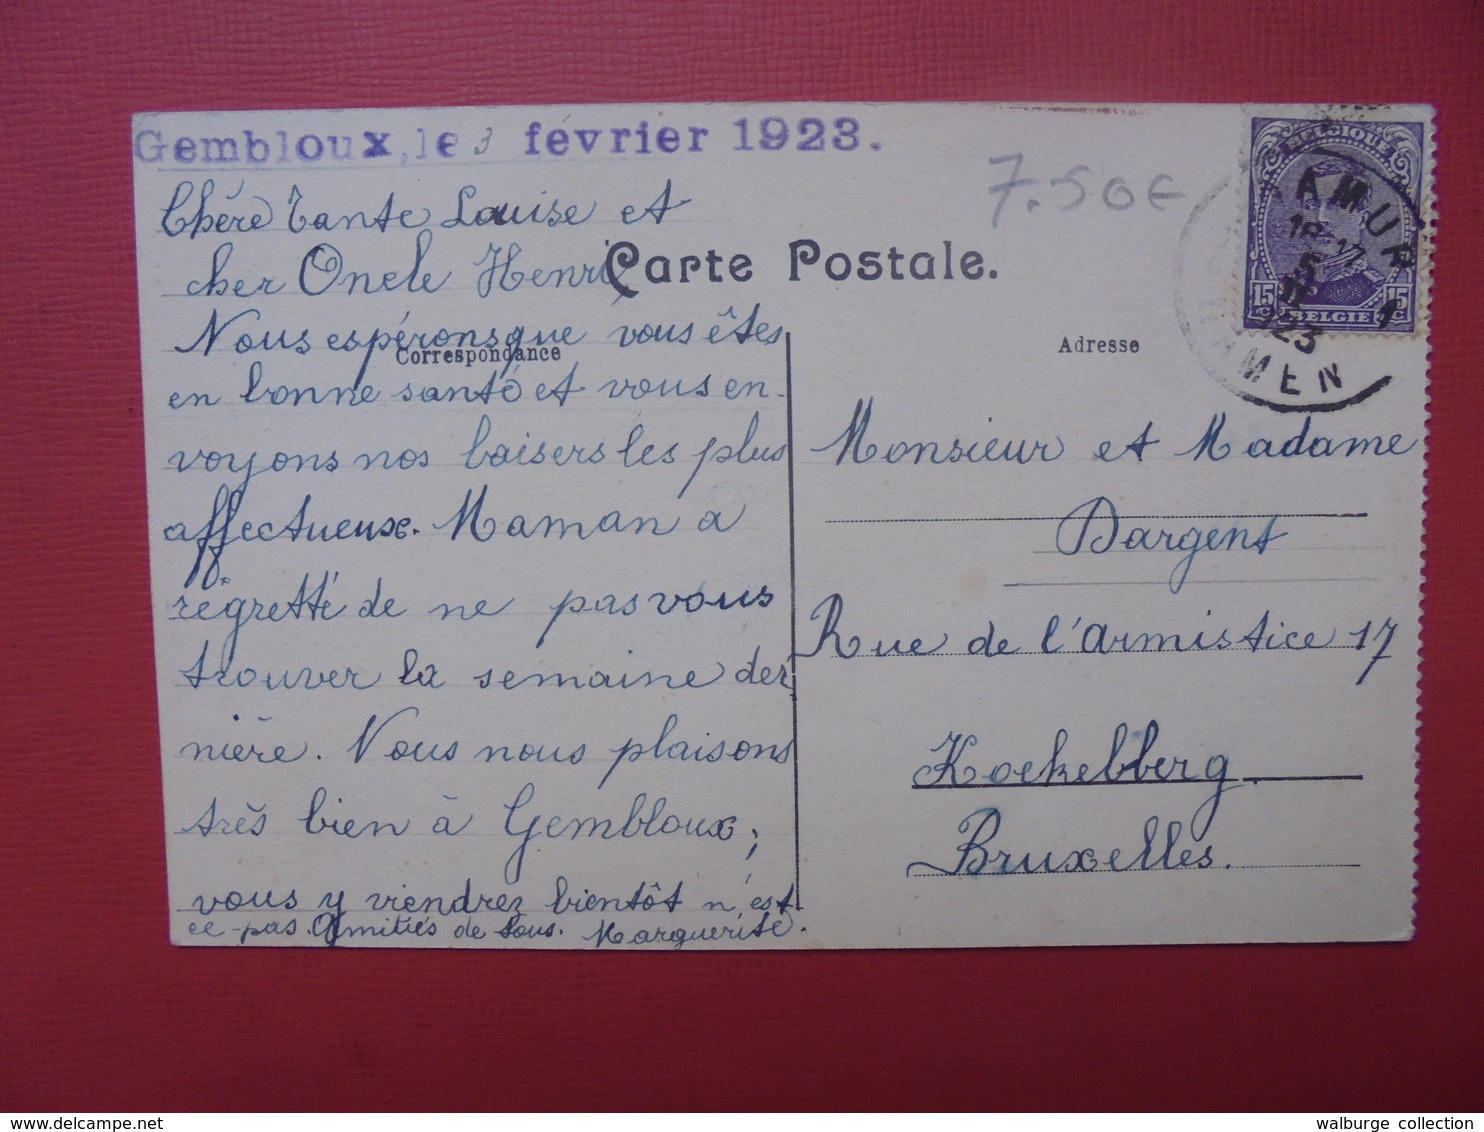 Gembloux, le 3 février 1923.
7.50€
Chère Tante Louise et
cher Oncle Henri
Carte Postale.
Nous espérons que vous êtes
Correspondance
en bonne santé et vous en-
voyons nos baisers les plus
affectueux. Maman a
regretté de ne pas vous
trouver la semaine der
nière. Nous nous plaisons
très bien à Gembloux;
vous y viendrez bientôt n'est
ce-pas. Amitiés de tous. Marguerite.
Adresse
Monsieur et Madame
Dargent
Rue de l'Armistice 17
Koekelbberg
Bruxelles.
BELGIQUE
15 C BELGIE 15 C
NAMUR 1
5
II
1923
NAMEN
walburge collection